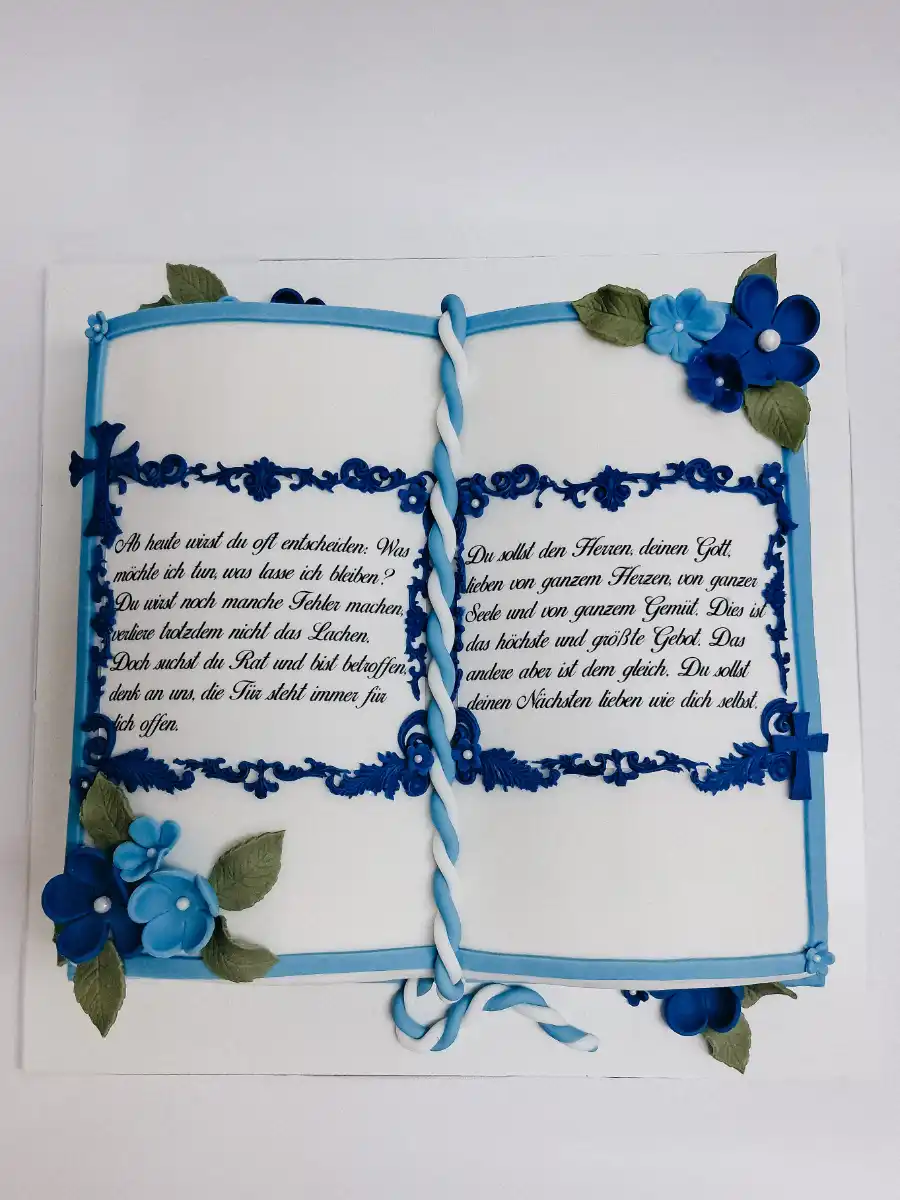 Ab heute wirst du oft entscheiden: Was
möchte ich tun, was lasse ich bleiben?
Du wirst noch manche Fehler machen,
verliere trotzdem nicht das Lachen.
Doch suchst du Rat und bist betroffen,
denk an uns, die Tür steht immer für
dich offen.
Du sollst den Herren, deinen Gott,
lieben von ganzem Herzen, von ganzer
Seele und von ganzem Gemüt. Dies ist
das höchste und größte Gebot. Das
andere aber ist dem gleich. Du sollst
deinen Nächsten lieben wie dich selbst.